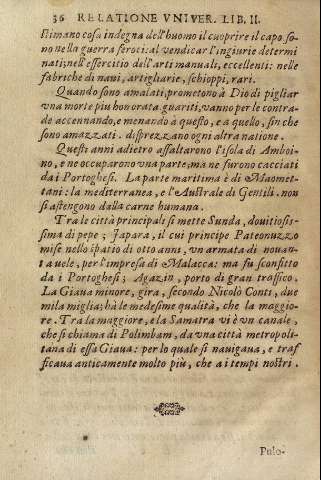 36 RELATIONE VNIVER. LIB. II.
stimano cosa indegna dell'huomo il cuoprire il capo. so-
no nella guerra feroci: al vendicar l'ingiurie determi
nati; nell'essercitio dell'arti manuali, eccellenti: nelle
fabriche di naui, artigliarie, schioppi, rari.
Quando sono amalati, prometono à Dio di pigliar
vna morte piu honorata guariti, vanno per le contra-
de accennando, e menando à questo, e a quello, fin che
sono amazzati. disprezzano ogni altra natione.
Questi anni adietro assaltarono l'isola di Amboi-
no, e ne occuparono vna parte, ma ne furono cacciati
da i Portoghesi. La parte maritima è di Maomet-
tani: la mediterranea, e l'Australe di Gentili. non
si astengono dalla carne humana.
Tra le città principali si mette Sunda, douitiosis-
sima di pepe; Japara, il cui principe Pateonuzzo
mise nello spatio di otto anni, vn armata di nouan-
ta uele, per l'impresa di Malacca: ma fu sconfitto
da i Portoghesi; Agazin, porto di gran traffico.
La Giaua minore, gira, secondo Nicolò Conti, due
mila miglia; hà le medesime qualità, che la maggio-
re. Tra la maggiore, e la Samatra vi è vn canale,
che si chiama di Polimbam, da vna città metropoli-
tana di essa Giaua: per lo quale si nauigaua, e traf
ficaua anticamente molto piu, che a i tempi nostri.
Pulo-